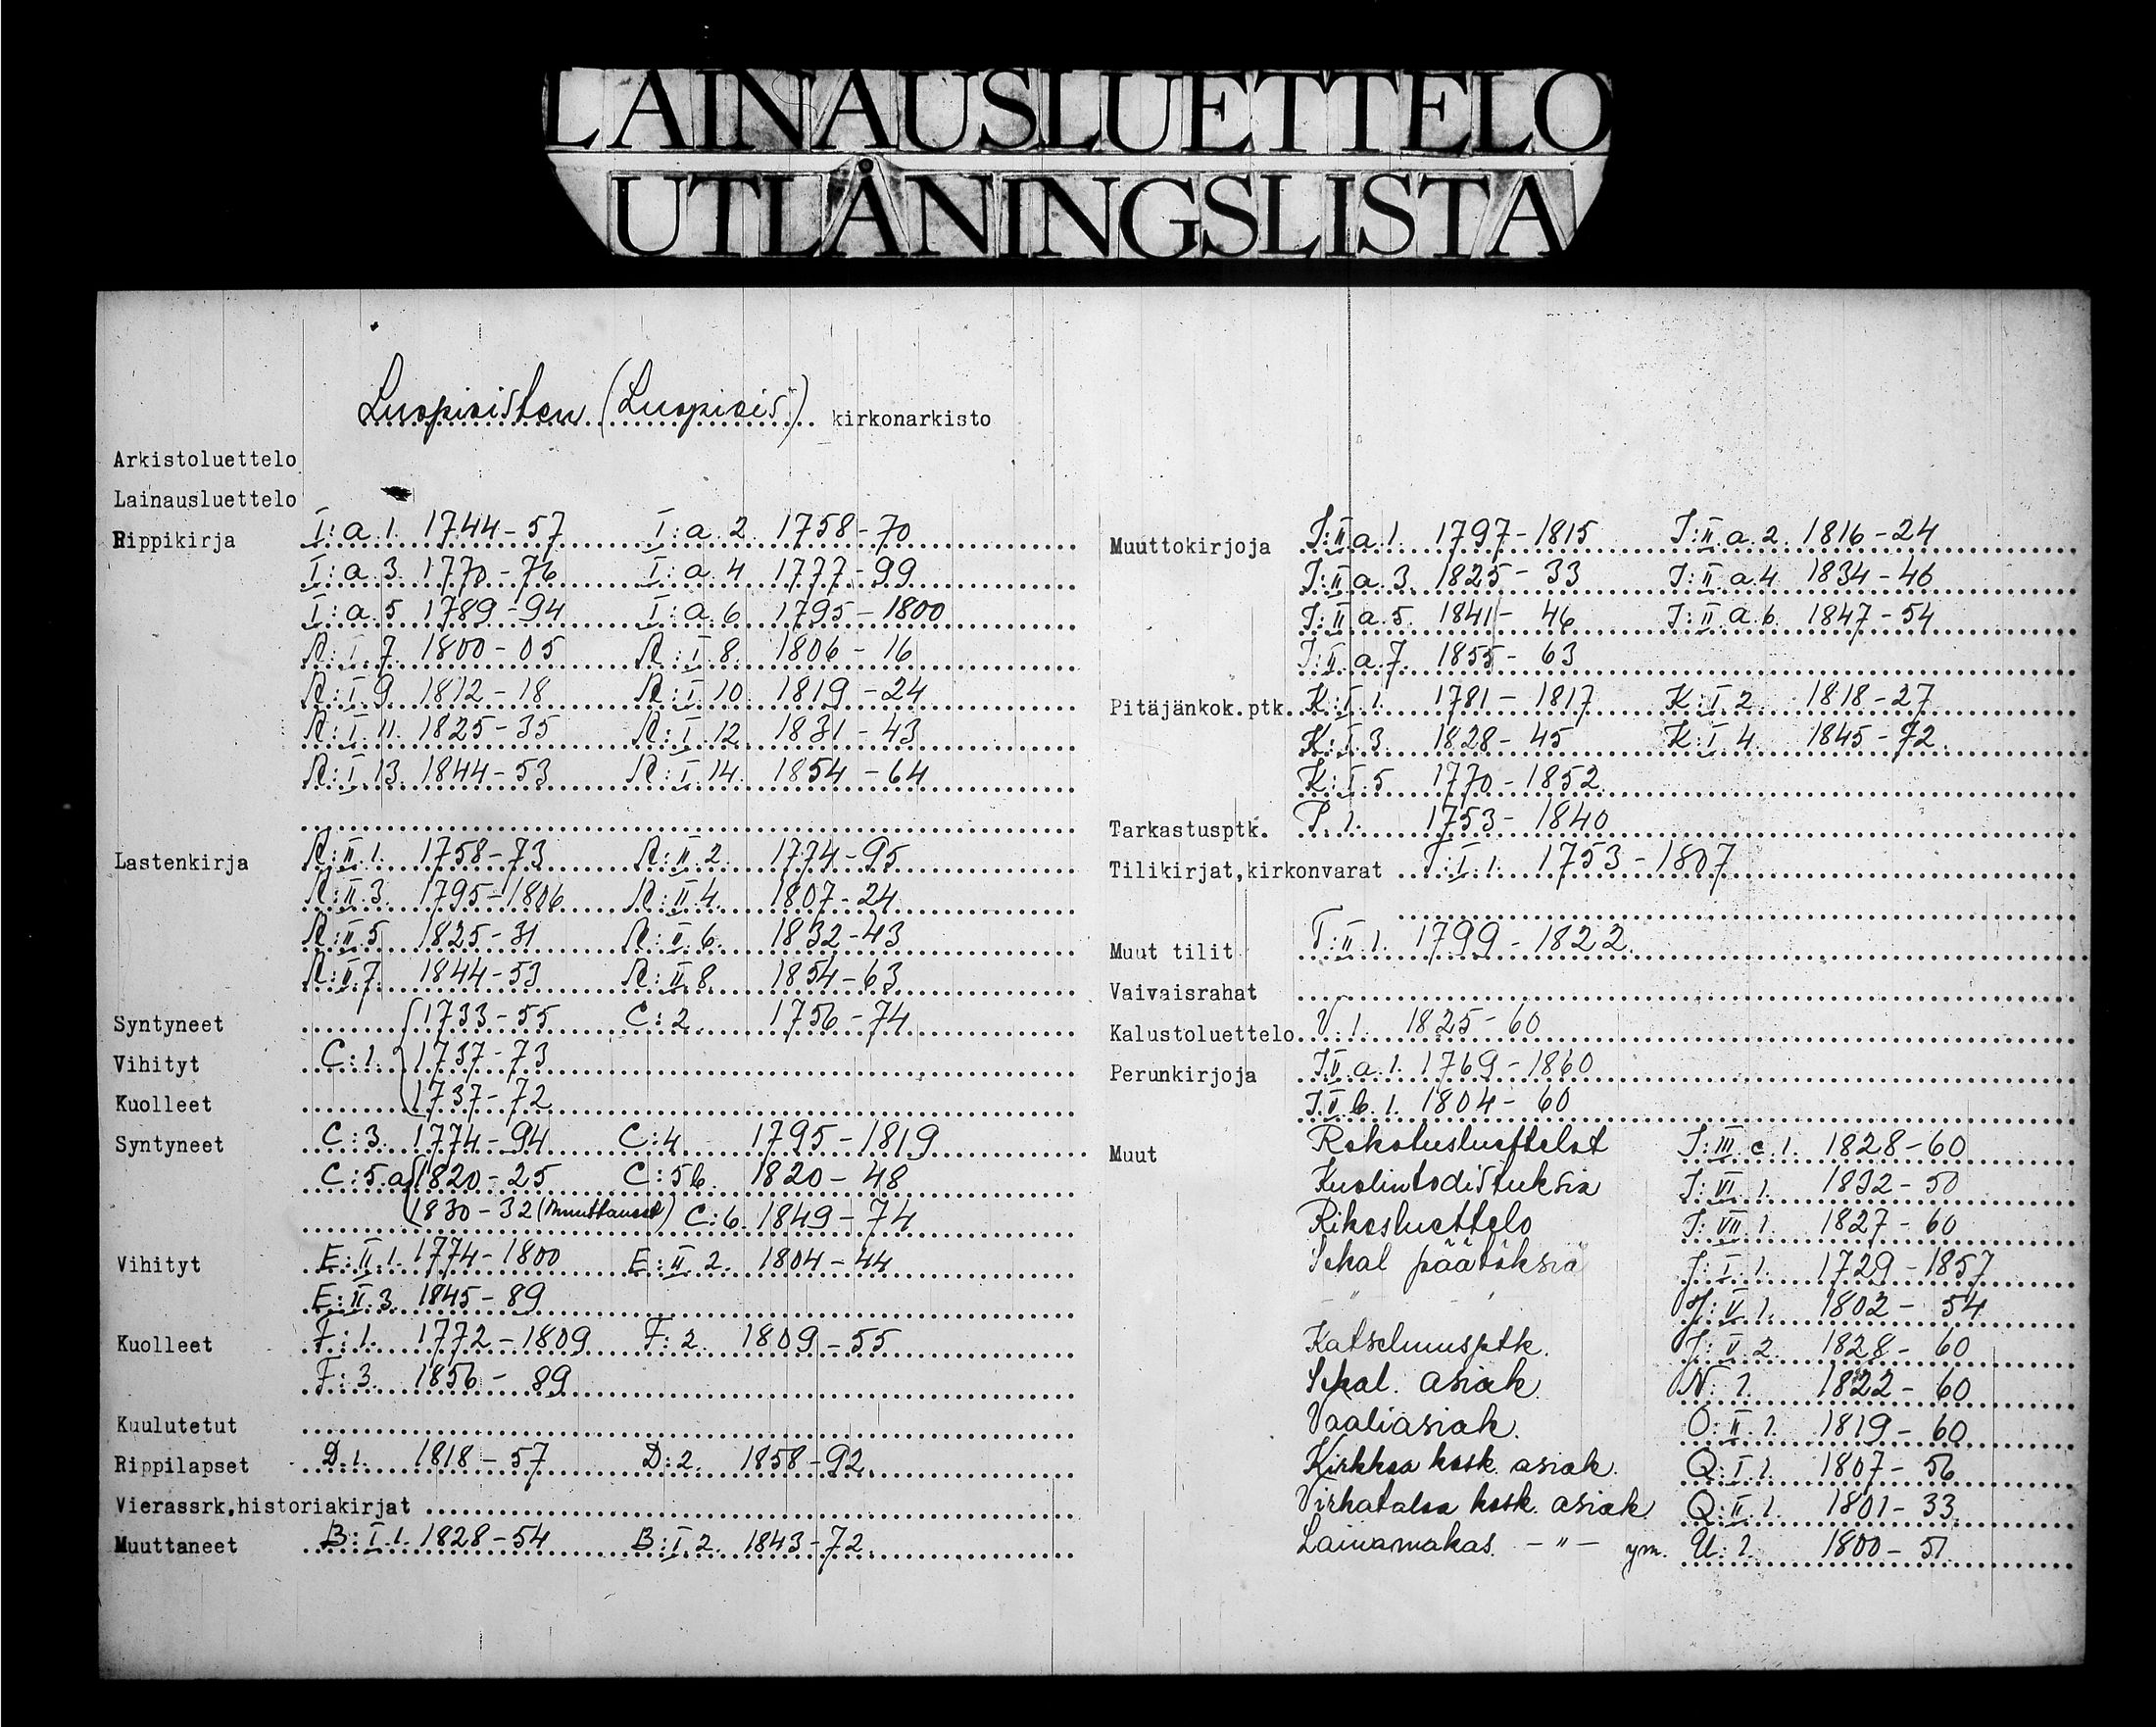 LAINAUSLUETTELO
UTLÅNINGSLISTA
Luopioisten (Luopiois) kirkonarkisto
Arkistoluettelo
Lainausluettelo
Rippikirja I:a.1. 1744-57 I:a.2 1758-70
I:a.3. 1770-76 I:a.4 1777-99
I:a.5 1789-94 I:a.6 1795-1800
R:I.7. 1800-05 R:I.8. 1806-16
R:I.9. 1812-18 R:I.10. 1819-24
R:I.11. 1825-35 R:I.12. 1831-43
R:I.13. 1844-53 R:I.14. 1854-64
Lastenkirja R:II.1. 1758-73 R:II.2. 1774-95
R:II.3. 1795-1806 R:II.4. 1807-24
R:II.5 1825-31 R:II.6. 1832-43
R:II.7. 1844-53 R:II.8. 1854-63
Syntyneet 1733-55 C:2. 1756-74
Vihityt C:1. 1737-73
Kuolleet 1737-72
Syntyneet C:3. 1774-94 C:4 1795-1819
C:5.a 1820-25 C:5b. 1820-48
1830-32 (muuttaneet) C:6. 1849-74
Vihityt E:II.1. 1774-1800 E:II.2. 1804-44
E:II.3. 1845-89
Kuolleet F:1. 1772-1809 F:2. 1809-55
F:3. 1856-89
Kuulutetut
Rippilapset D.1. 1818-57 D:2. 1858-92.
Vierassrk,historiakirjat
Muuttaneet B:I.1. 1828-54 B:I.2. 1843-72.
Muuttokirjoja J:II.a.1. 1797-1815 J:II.a.2. 1816-24
J:II.a.3. 1825-33 J:II.a.4 1834-46
J:II.a.5. 1841-46 J:II.a.6. 1847-54
J:II.a.7. 1855-63
Pitäjänkok.ptk. K:I.1. 1781-1817 K:I.2. 1818-27
K:I.3. 1828-45 K:I.4. 1845-72.
K:I.5 1770-1852.
Tarkastusptk. P.1. 1753-1840
Tilikirjat,kirkonvarat T:I.1. 1753-1807
Muut tilit T:II.1. 1799-1822.
Vaivaisrahat
Kalustoluettelo V:1. 1825-60
Perunkirjoja J.II.a.1. 1769-1860
J.II.b.1. 1804-60
Muut Rokotusluettelot J:III.c.1. 1828-60
Kuolintodistuksia J:VI.1. 1832-50
Rikosluettelo J:VII.1. 1827-60
Sekal päätöksiä J:I.1. 1729-1857
- " - J:V.1. 1802-54
Katselmusptk. J:V.2. 1828-60
Sekal. asiak. N:1. 1822-60
Vaaliasiak. O:II.1. 1819-60
Kirkkoa kosk. asiak. Q:I.1. 1807-56
Virkataloa kosk. asiak. Q:II.1. 1801-33.
Lainamakas. - " - ym. U:1. 1800-51